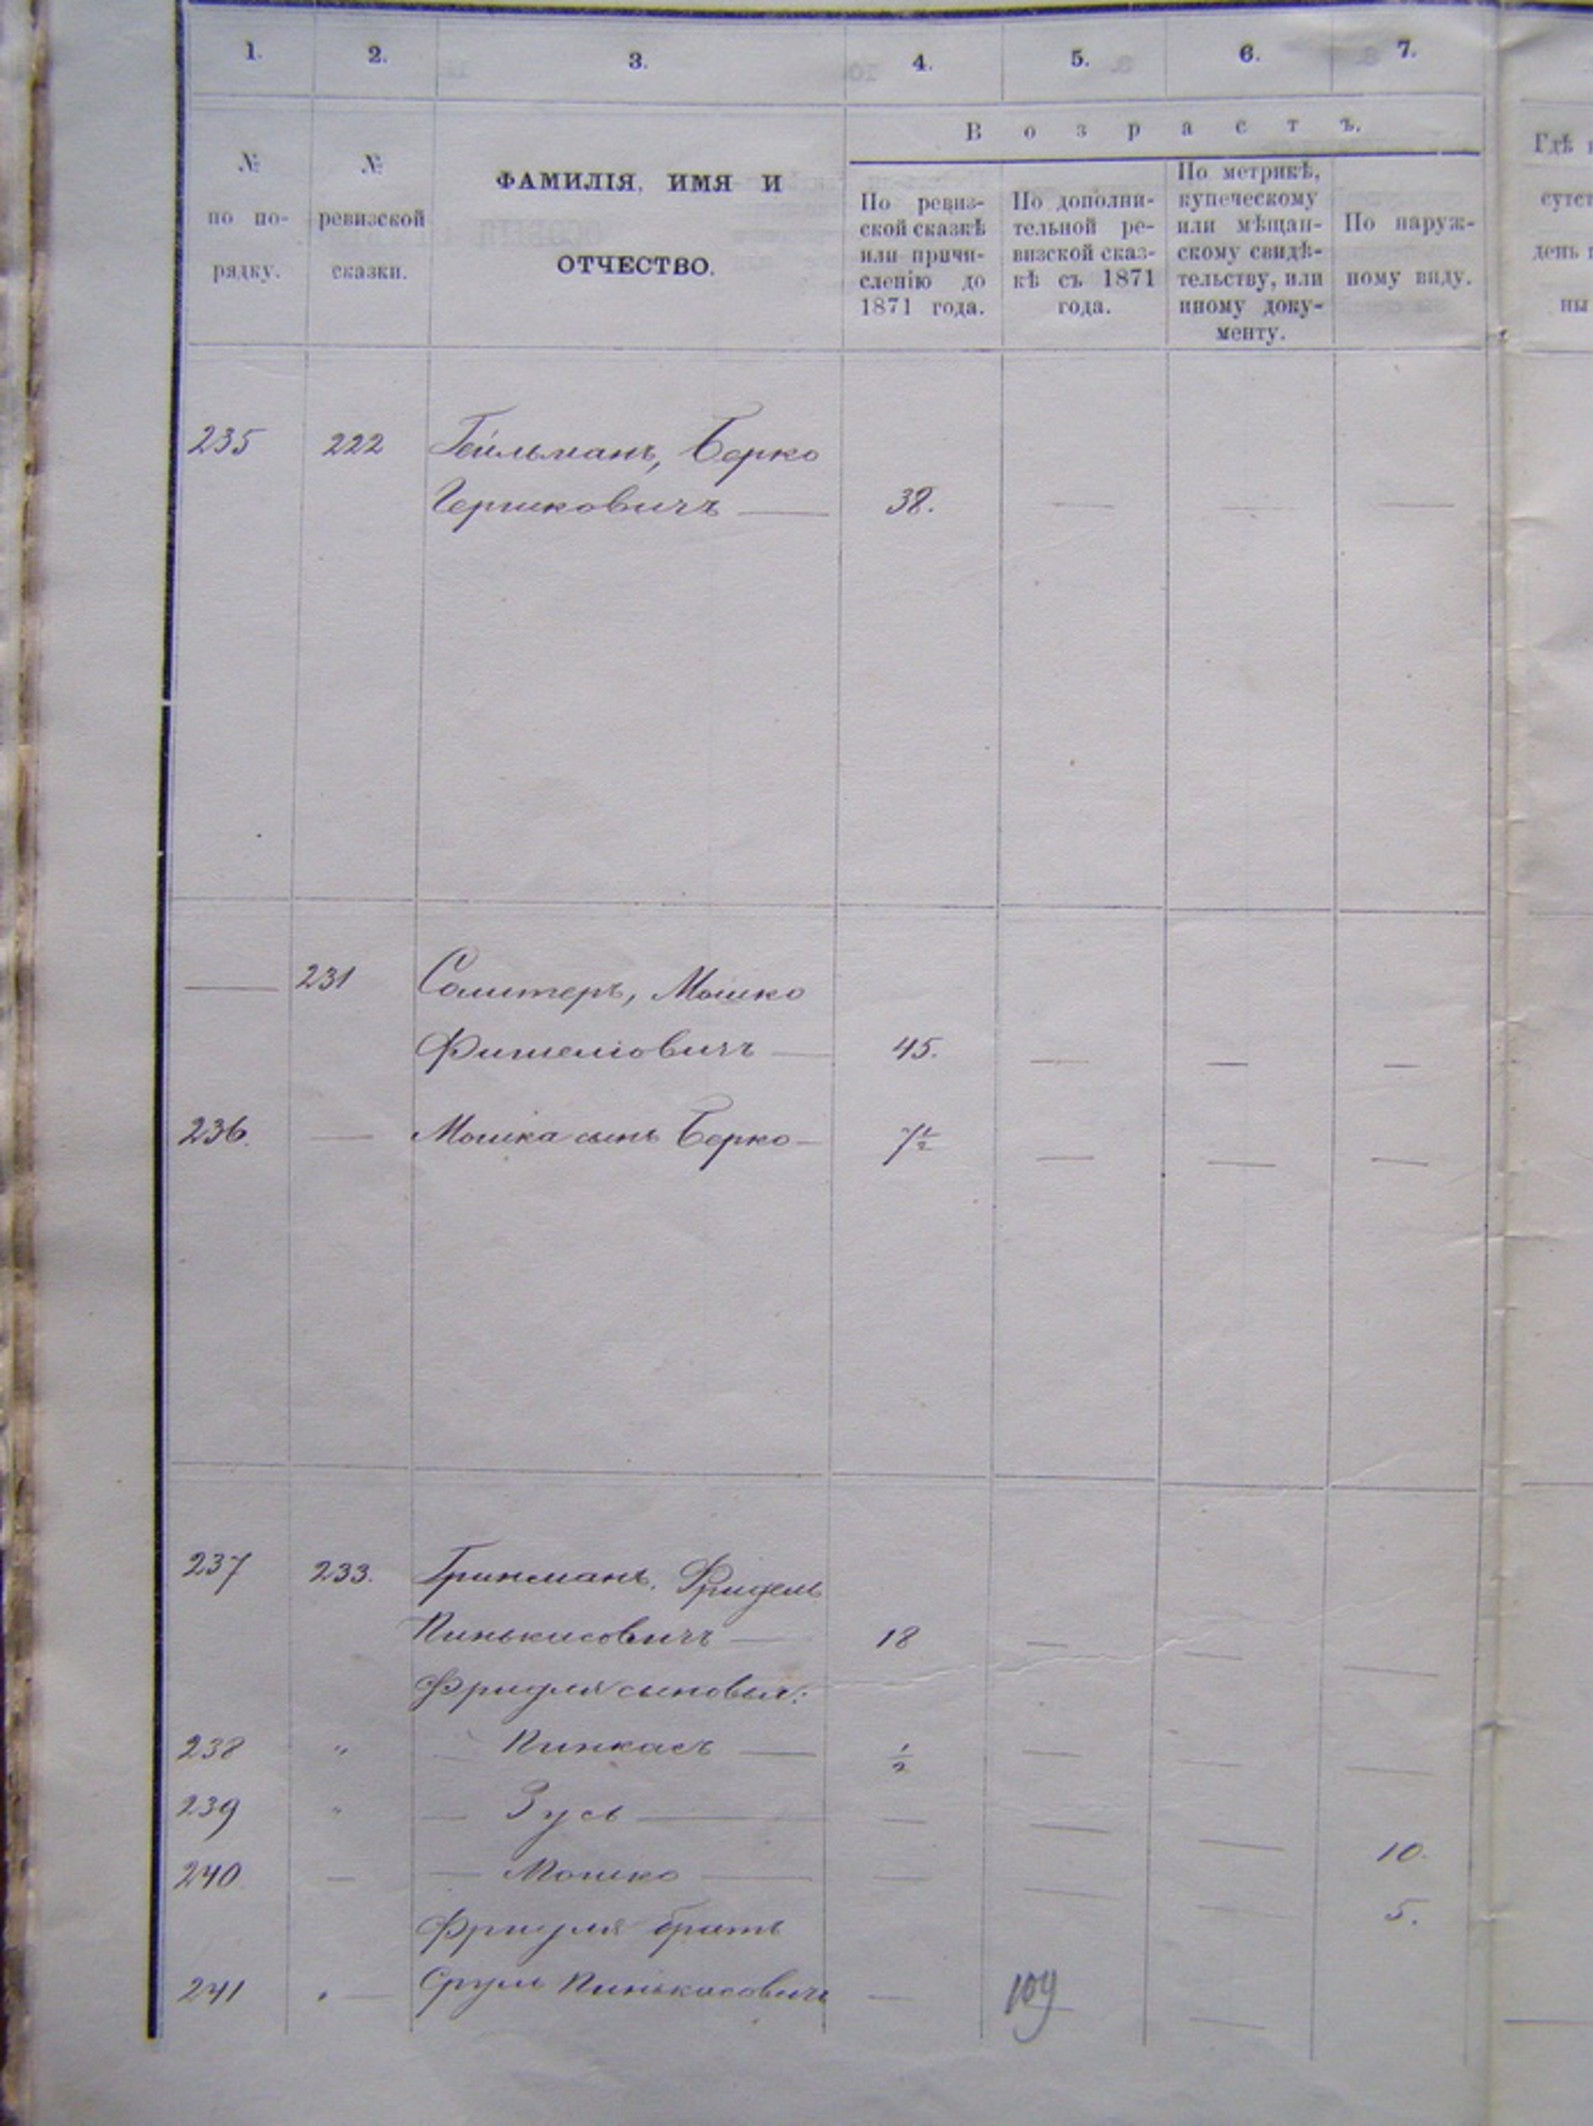 1. 2. 3. 4. 5. 6. 7.
В о з р а с т ъ.
№
по по-
рядку.
№
ревизской
сказки.
ФАМИЛІЯ, ИМЯ И
ОТЧЕСТВО.
По ревиз-
ской сказкѣ
или причи-
сленію до
1871 года.
По дополни-
тельной ре-
визской сказ-
кѣ съ 1871
года.
По метрикѣ,
купеческому
или мѣщан-
скому свидѣ-
тельству, или
иному доку-
менту.
По наруж-
ному виду.
Гдѣ
сутст
день
ны
235 222 Гейльманъ, Берко
Гершковичъ — 38. — — —
— 231 Солитеръ, Мошко
Фишелiовичъ — 45. — — —
236. — Мошка сынъ Берко — 7½ — — —
237 233. Гринманъ, Фридель
Пинькасовичъ — 18 — — —
Фриделя сыновья:
238 " — Пинкасъ — ½ — — —
239 " — Зусь — — — — 10.
240 — — Мошко — — — — 5.
Фриделя братъ
241 " — Сруль Пинькасовичъ — 109 —